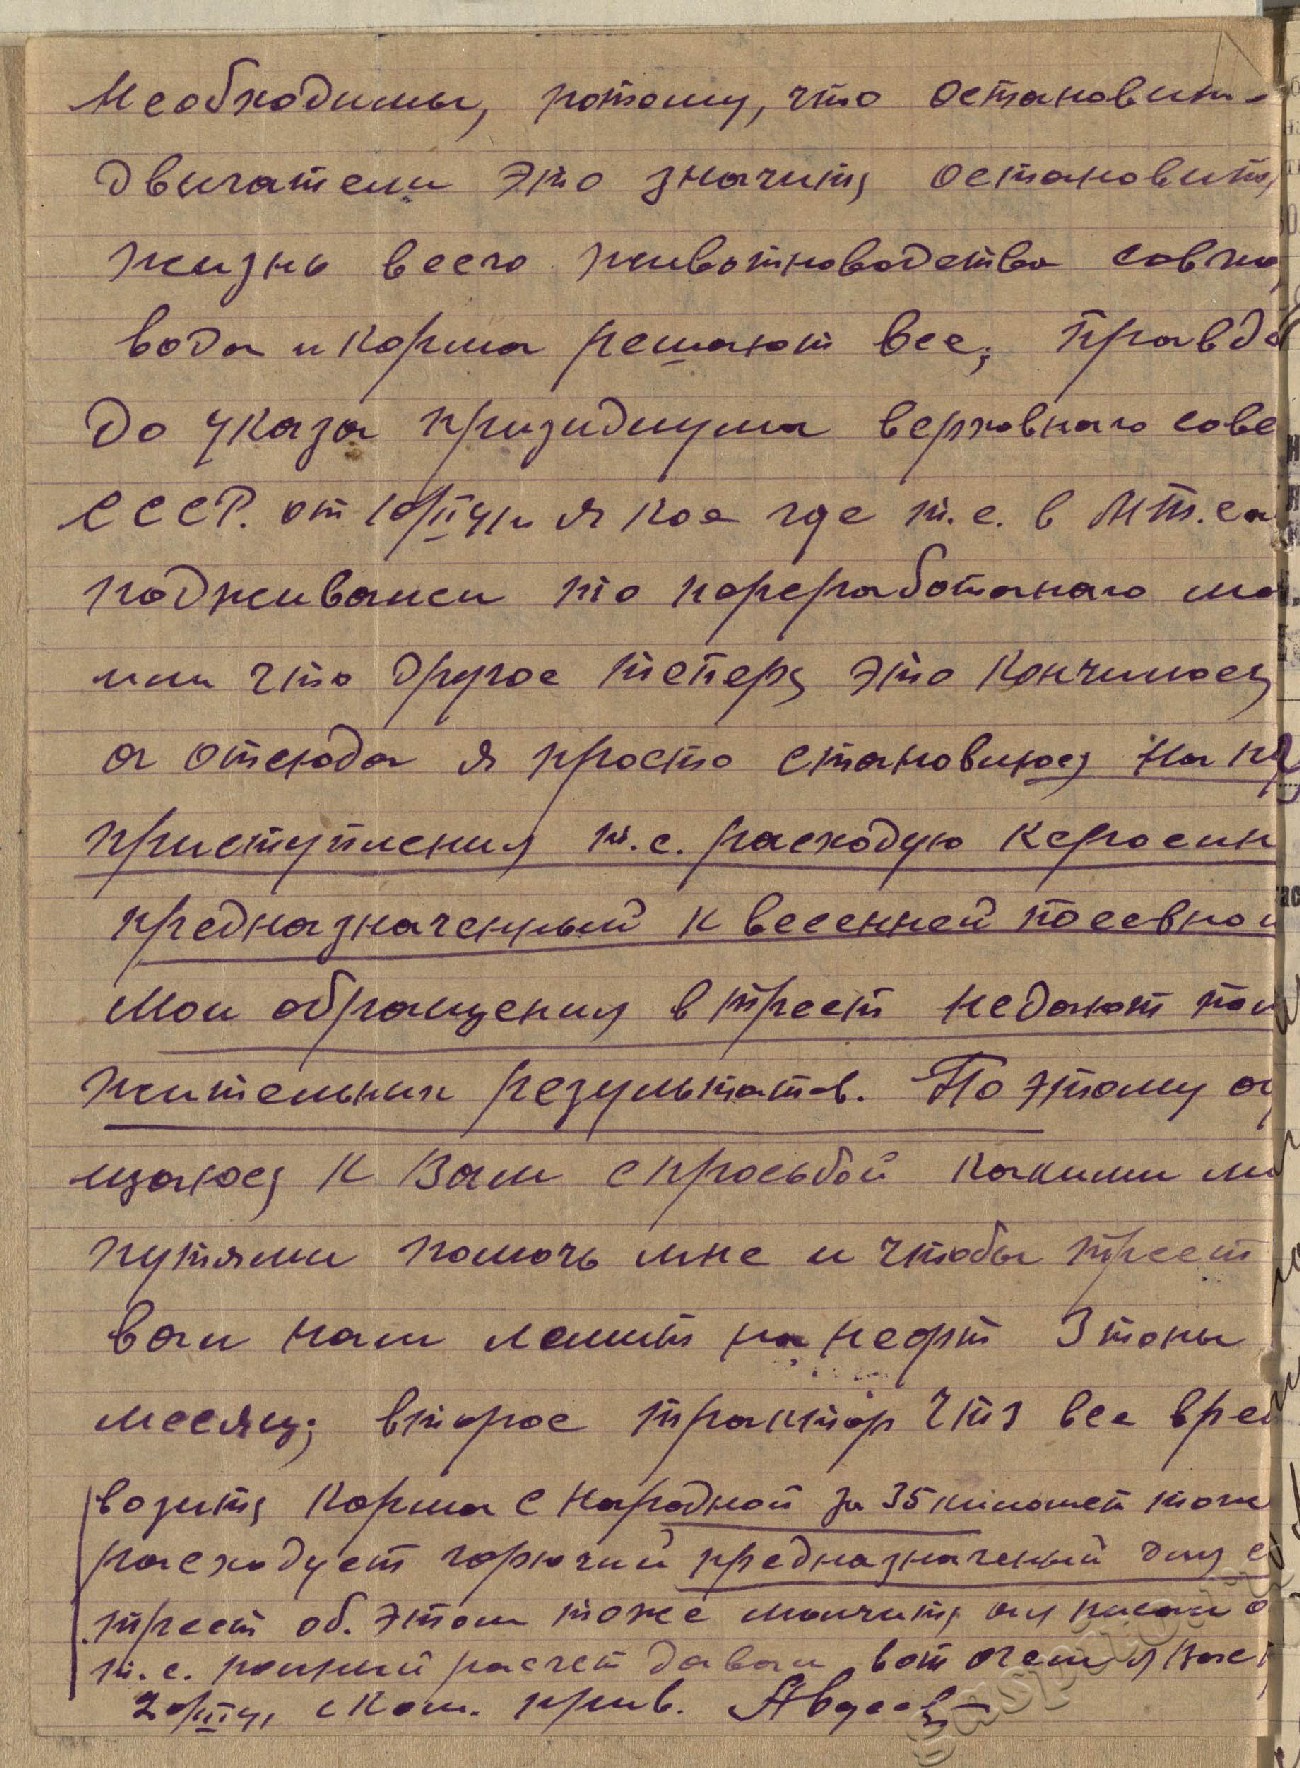 Необходимы, потому, что остановит-
двигатели это значитъ остановитъ
жизнь всего животноводства совхо
вода и корма решают все; правда
до указа призидиума верховного сове
СССР. от 10/II 41г я кое где т.е. в МТ.са
наживали то переработаного ма
или что другое теперъ это кончилосъ
а отсюда я просто становлюсъ на пу
приступления т.е. расходую керосин
предназначенный к весенней посевной
Мои обращения в трест недают пол
жительных результатов. По этому об
щаюсъ к Вам спросьбой какими ли
путями помочь мне и чтобы трест
вал нам лемит на нефт 3 тоны
месяц; второе трактор что все врем
возитъ корма с Народной за 35 километ тоже
расходует горючий предназначеный для с
трест об. этом тоже молчитъ, им писал о
т.е. полный расчет давал вот очем я Вас
20/III 41 с Ком. прив. Авдеев
gaspito.ru